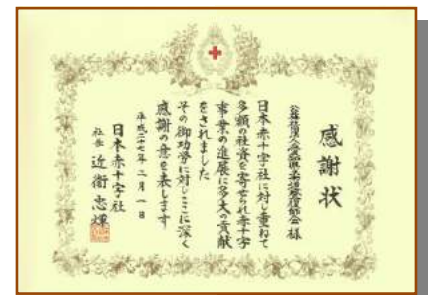 感謝状
公益社団法人 県柔道整復師会 様
日本赤十字社に対し重ねて
多額の社資を寄せられ赤十字
事業の進展に多大の貢献
をされました
その御功労に対しここに深く
感謝の意を表します
平成二十七年二月一日
日本赤十字社
社長 近衞忠煇